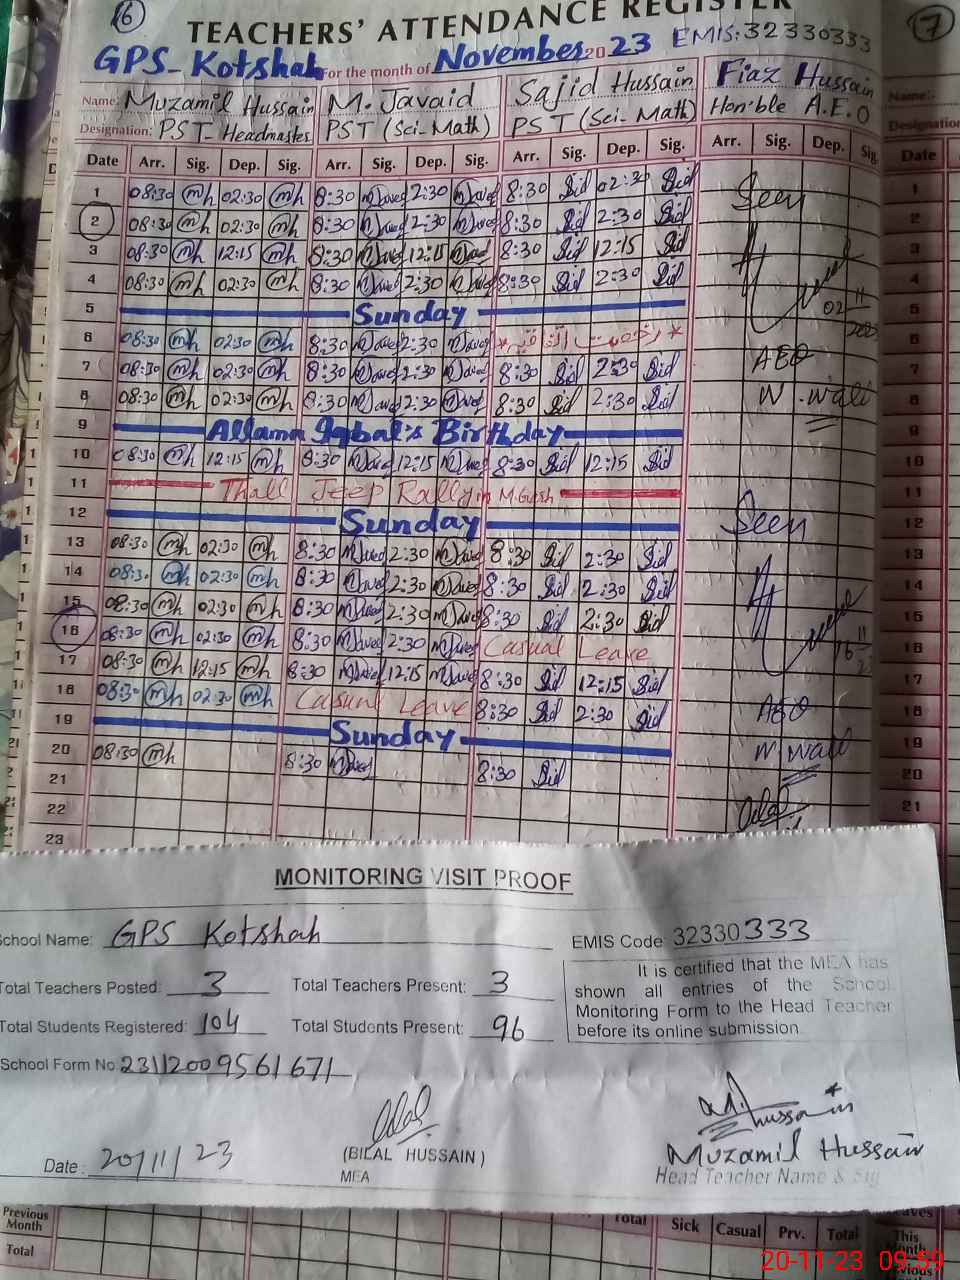 6
TEACHERS' ATTENDANCE REGISTER
7
GPS-Kotshah For the month of November 2023 EMIS:32330333
Name: Muzamil Hussain M. Javaid Sajid Hussain Fiaz Hussain
Designation: PST Headmaster PST (Sci-Math) PST (Sci-Math) Hon'ble A.E.O
Date Arr. Sig. Dep. Sig. Arr. Sig. Dep. Sig. Arr. Sig. Dep. Sig. Arr. Sig. Dep. Sig.
1 08:30 mh 02:30 mh 8:30 Javed 2:30 Javed 8:30 Sjd 02:30 Sjd Seen
2 08:30 mh 02:30 mh 8:30 Javed 2:30 Javed 8:30 Sjd 2:30 Sjd
3 08:30 mh 12:15 mh 8:30 Javed 12:15 Javed 8:30 Sjd 12:15 Sjd
4 08:30 mh 02:30 mh 8:30 Javed 2:30 Javed 8:30 Sjd 2:30 Sjd
5 Sunday 02 11 2023
6 08:30 mh 02:30 mh 8:30 Javed 2:30 Javed
7 08:30 mh 02:30 mh 8:30 Javed 2:30 Javed 8:30 Sjd 2:30 Sjd AEO
8 08:30 mh 02:30 mh 8:30 Javed 2:30 Javed 8:30 Sjd 2:30 Sjd W.wali
9 Allama Iqbal's Birthday
10 08:30 mh 12:15 mh 8:30 Javed 12:15 Javed 8:30 Sjd 12:15 Sjd
11 Thall Jeep Rally in M.Garh
12 Sunday Seen
13 08:30 mh 02:30 mh 8:30 Javed 2:30 Javed 8:30 Sjd 2:30 Sjd
14 08:30 mh 02:30 mh 8:30 Javed 2:30 Javed 8:30 Sjd 2:30 Sjd
15 08:30 mh 02:30 mh 8:30 Javed 2:30 Javed 8:30 Sjd 2:30 Sjd
16 08:30 mh 02:30 mh 8:30 Javed 2:30 Javed Casual Leave 16 11 23
17 08:30 mh 12:15 mh 8:30 Javed 12:15 Javed 8:30 Sjd 12:15 Sjd
18 08:30 mh 02:30 mh Casual Leave 8:30 Sjd 2:30 Sjd AEO
19 Sunday W.wali
20 08:30 mh 8:30 Javed 8:30 Sjd
21
22
23
MONITORING VISIT PROOF
School Name: GPS Kotshah EMIS Code: 32330333
Total Teachers Posted: 3 Total Teachers Present: 3
Total Students Registered: 104 Total Students Present: 96
School Form No 23112009561671
It is certified that the MEA has
shown all entries of the School
Monitoring Form to the Head Teacher
before its online submission.
Date: 20/11/23
(BILAL HUSSAIN)
MEA
Muzamil Hussain
Head Teacher Name & Sig
Previous Month Total Sick Casual Prv. Total
Total This Month
20-11-23 09:59